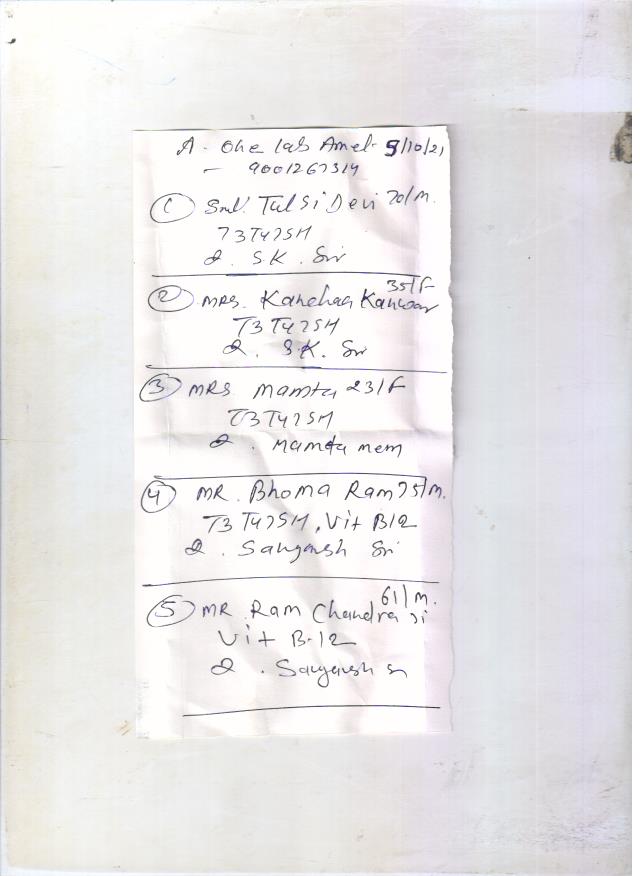 A. One Lab Amet 5/10/21
- 9001267314
① Smt. Tulsi Devi 70/M.
T3T4TSH
D. S.K. Sir
② MRS. Kanchan Kanwar 35/F
T3T4TSH
D. S.K. Sir
③ MRS Mamta 23/F
T3T4TSH
D. Mamta mem
④ MR. Bhoma Ram 75/M.
T3T4TSH, Vit B12
D. Sir
⑤ MR Ram Chandra Ji 61/M.
Vit B-12
D.